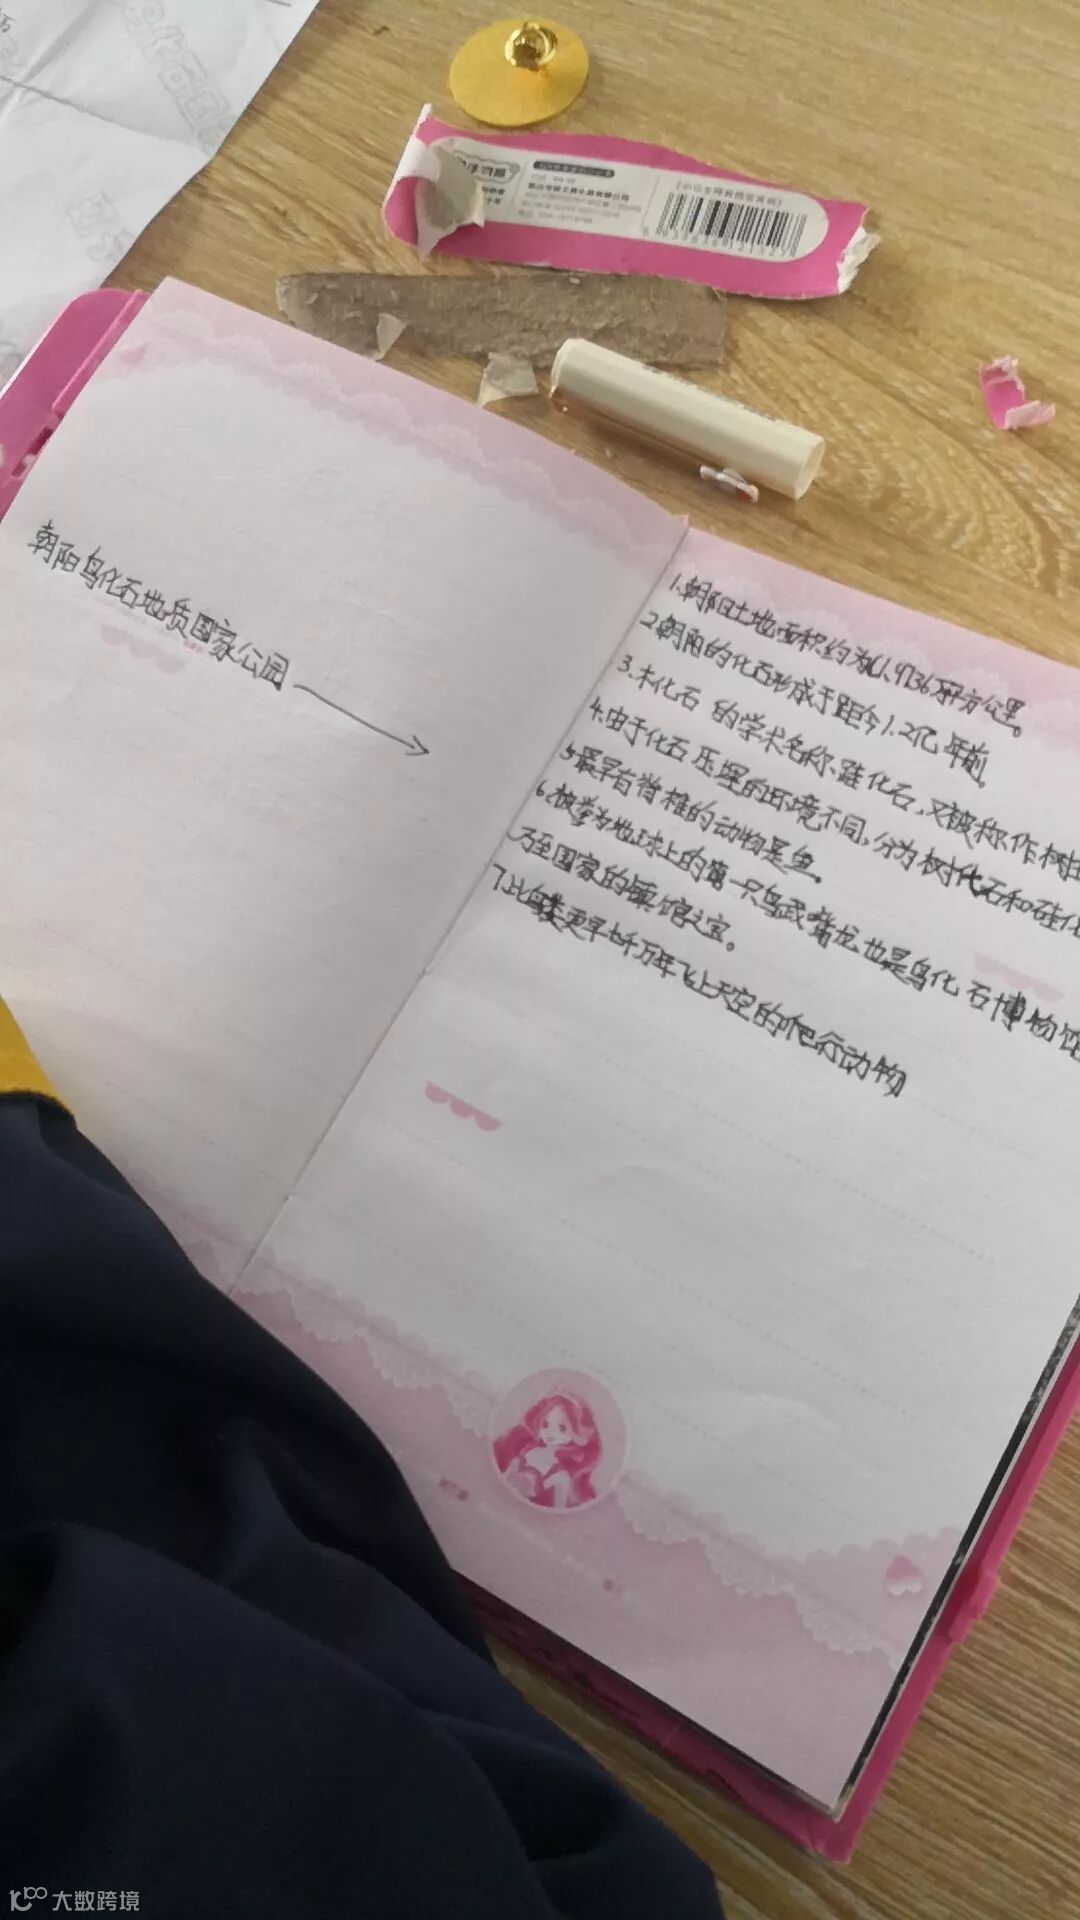 朝阳鸟化石地质国家公园
1.朝阳土地面积约为1.9736万平方公里。
2.朝阳的化石形成于距今1.2亿年前。
3.木化石的学术名称:硅化石,又被称作树
4.由于化石压埋的环境不同,分为树代石和硅化
5.最早有脊椎的动物是鱼。
6.被誉为地球上的第一只鸟武嘴龙,也是鸟化石博物馆
乃至国家的镇馆之宝。
7.比鸟类更早七千万年飞上天空的爬行动物
大数跨境